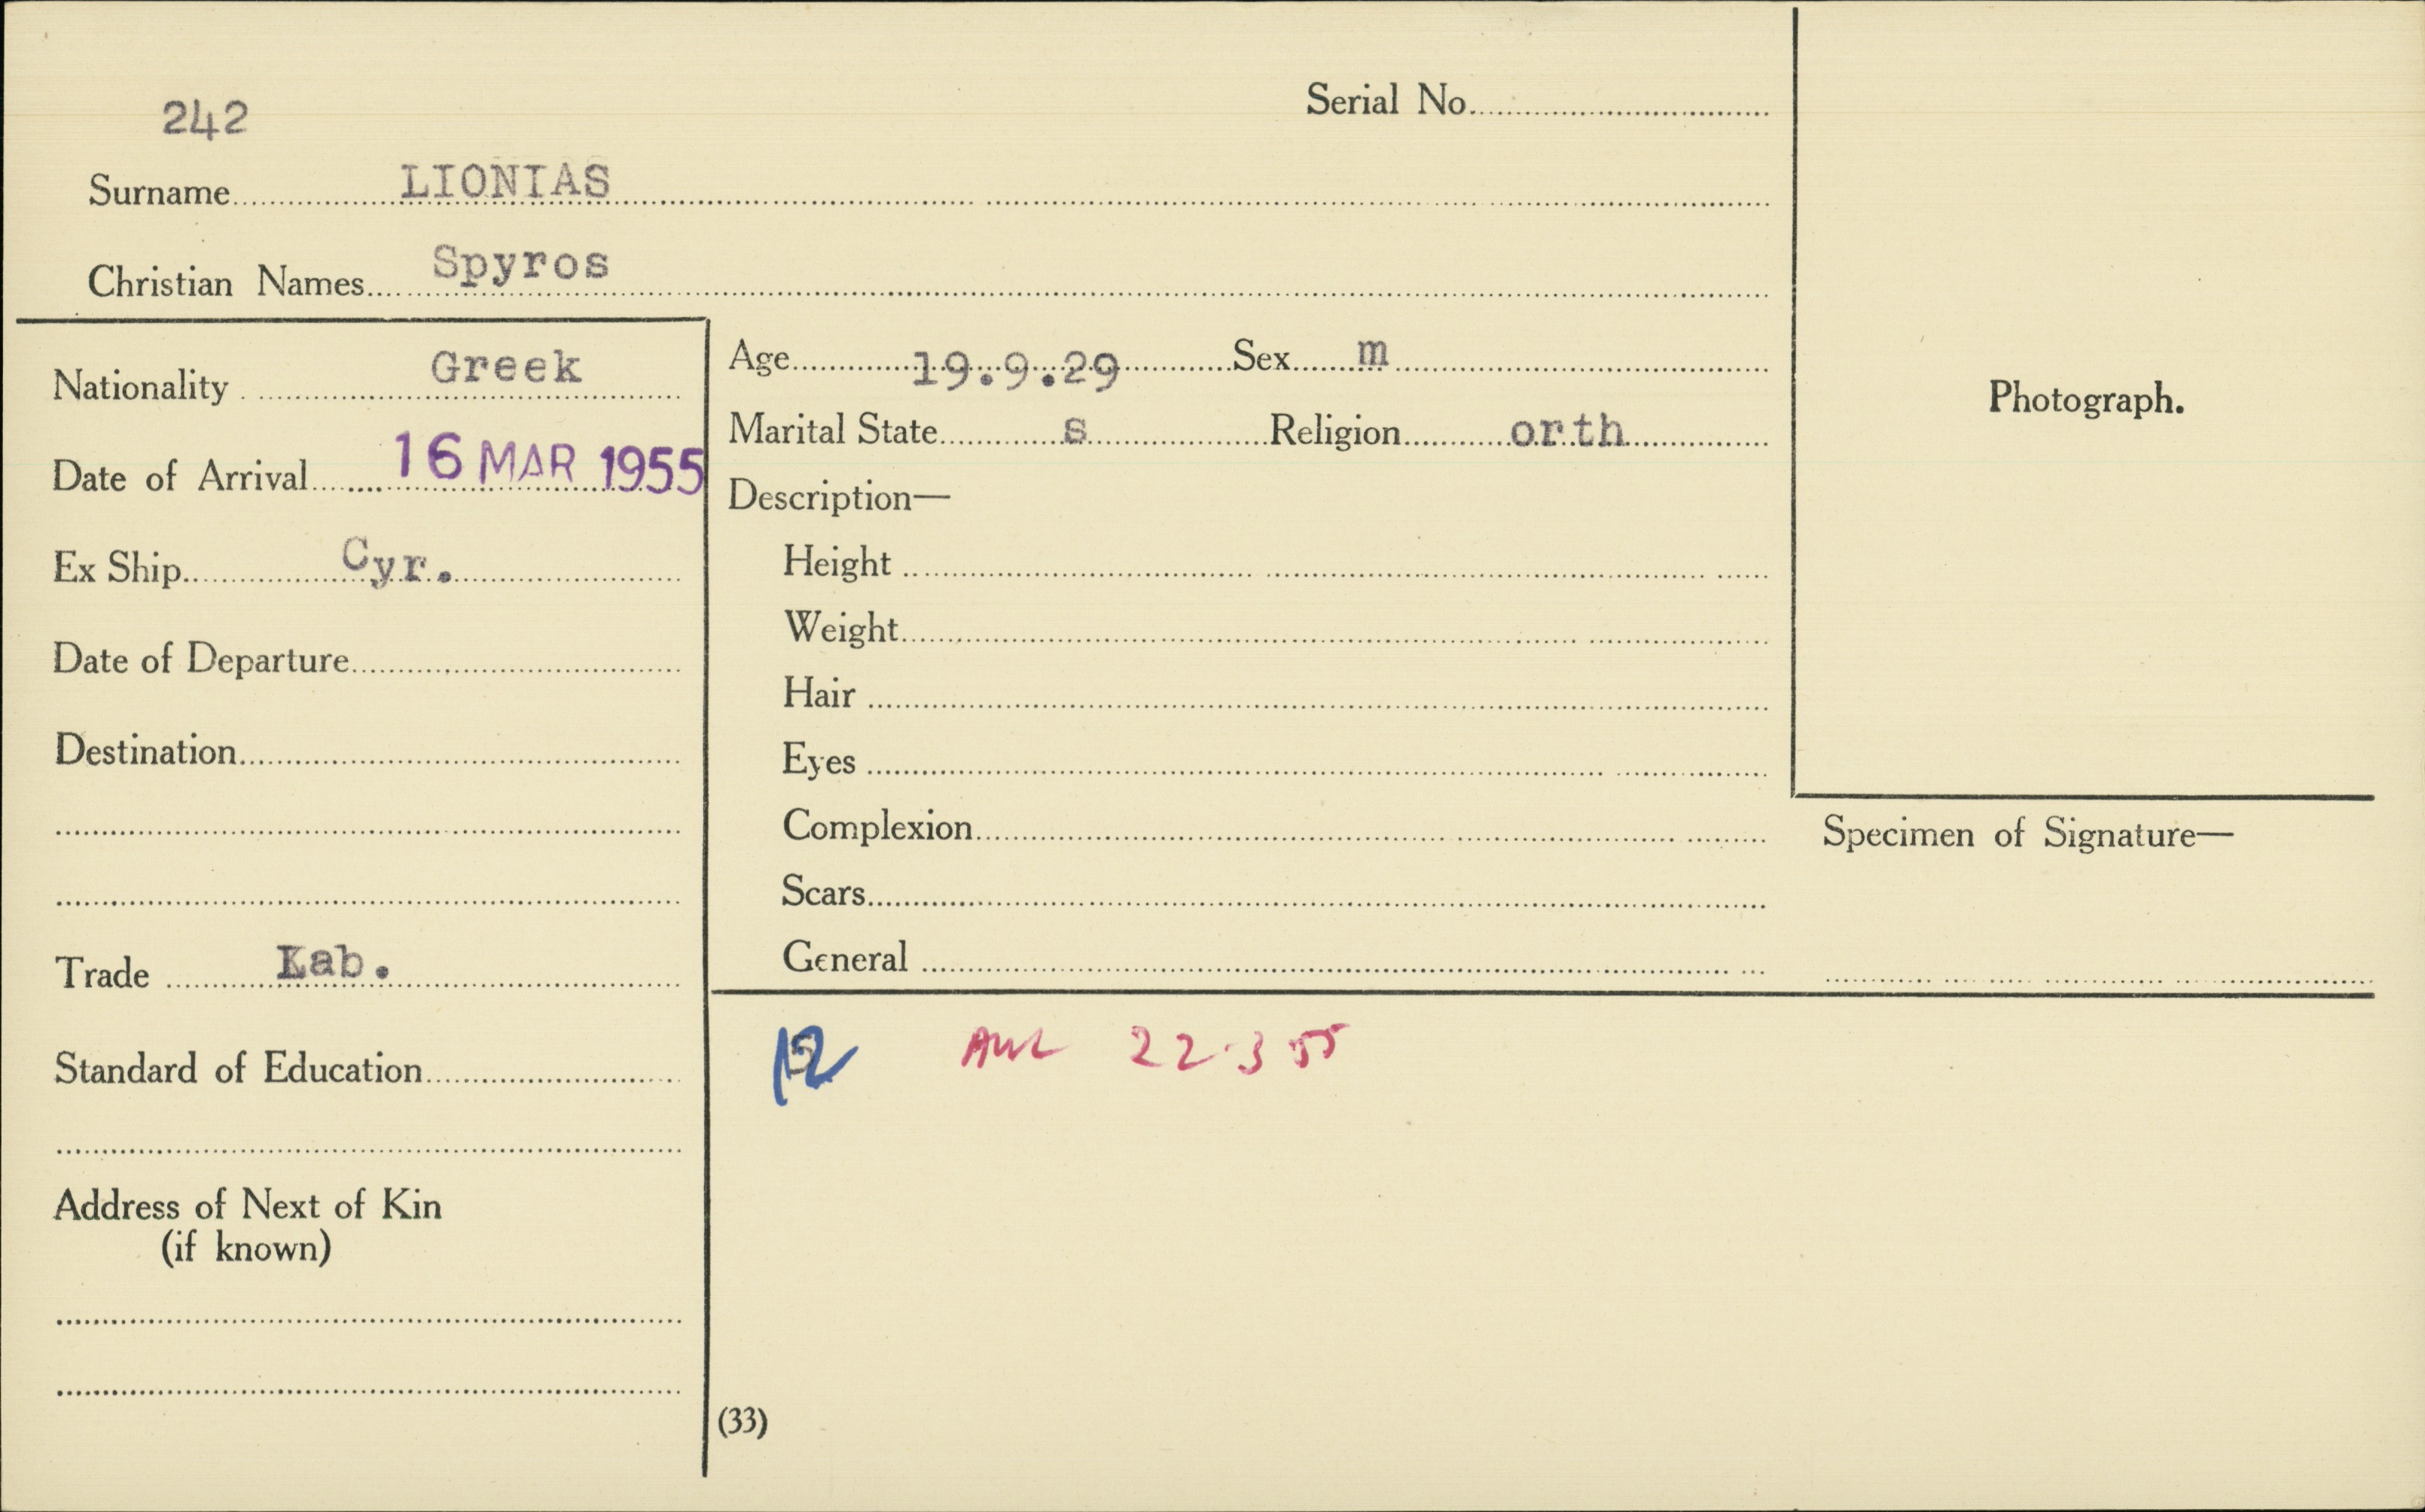 242
Serial No.
Surname LIONIAS
Christian Names Spyros
Nationality Greek
Date of Arrival 16 MAR 1955
Ex Ship Cyr.
Date of Departure
Destination
Trade Lab.
Standard of Education
Address of Next of Kin
(if known)
Age 19.9.29 Sex m
Marital State s Religion orth
Description—
Height
Weight
Hair
Eyes
Complexion
Scars
General
Photograph.
Specimen of Signature—
22.3 55
(33)